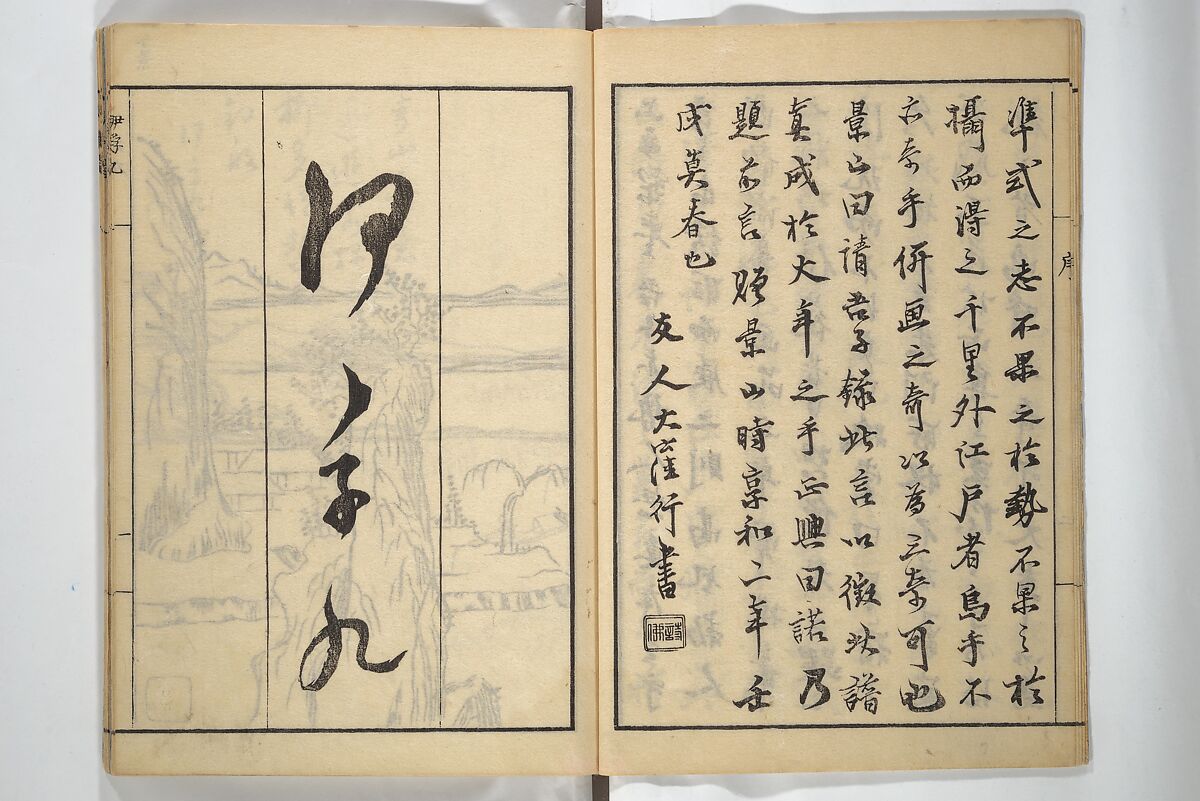 序
準式之志不果之於勢不果之於
攝而得之千里外江戸者烏乎不
亦奇乎併画之奇以為三奇可也
景山曰請吾子録此言以徴此譜
真成於大年之手正興曰諾乃
題前言贈景山時享和二年壬
戌莫春也
友人大窪行書
詩佛
伊孚九
伊孚九
一